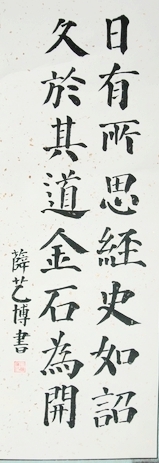 日有所思經史如詔
久於其道金石為開
薛艺博書